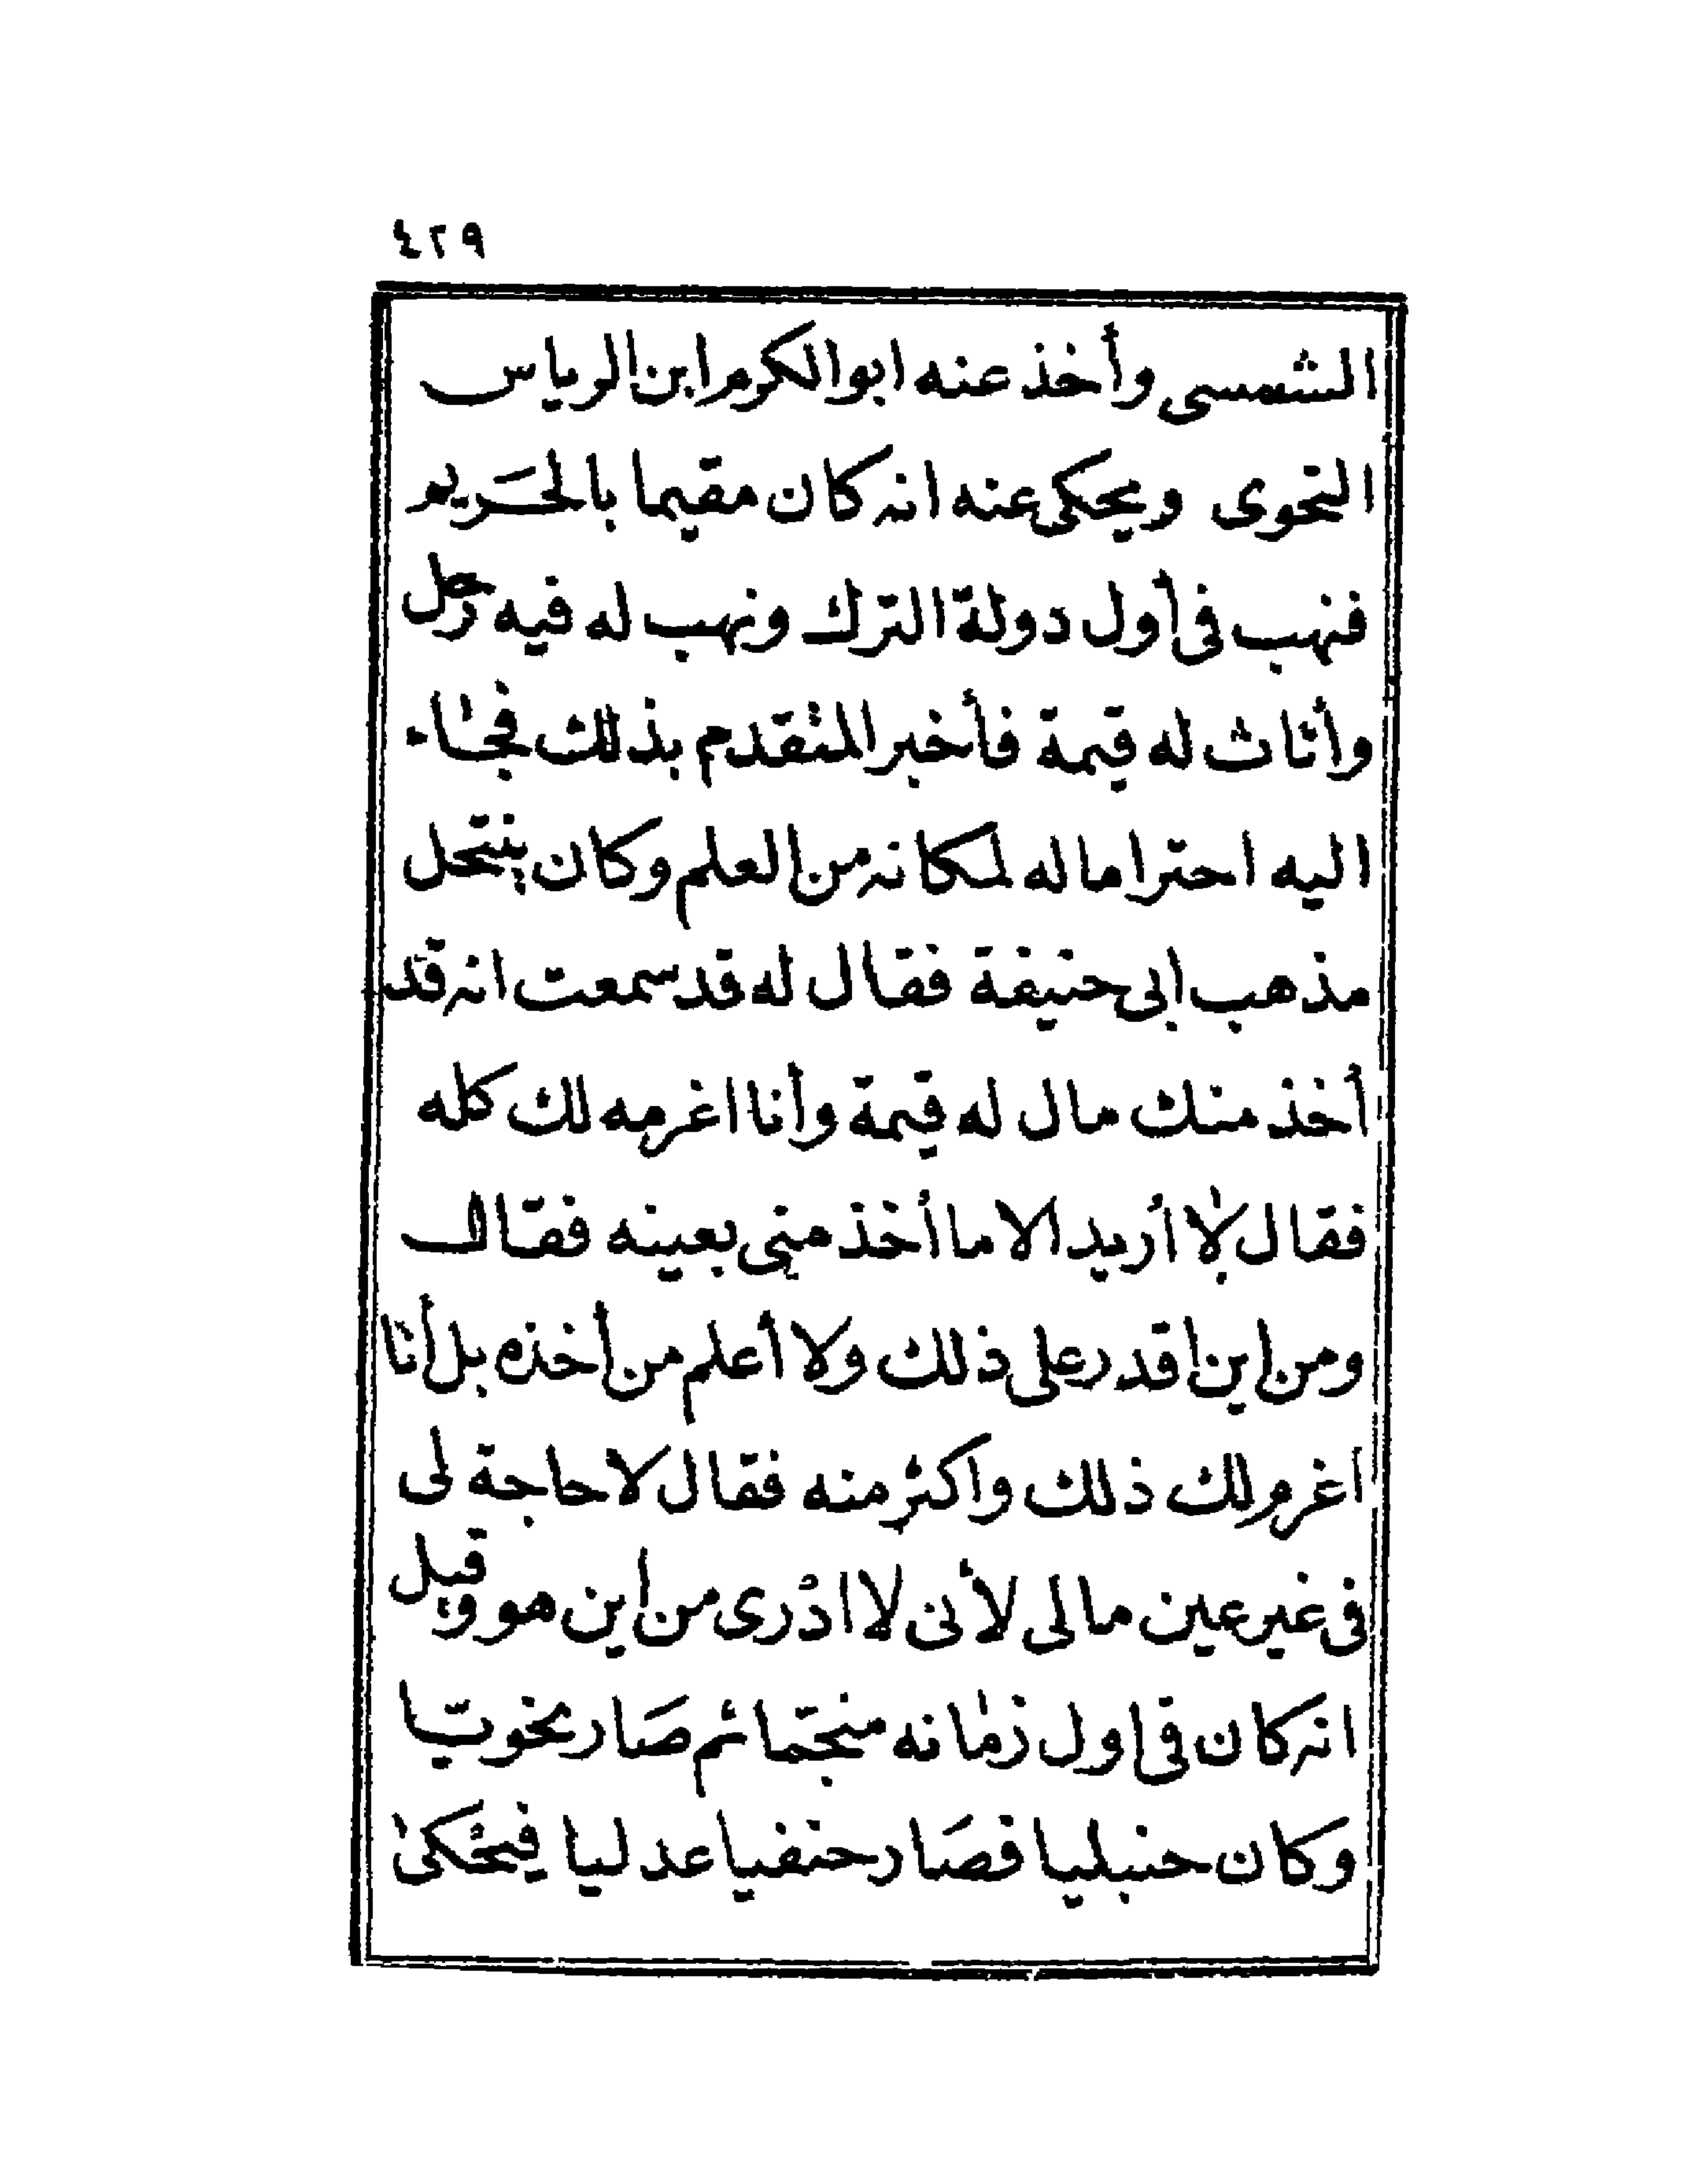 ٤٢٩
الشمسى وأخذ عنه ابو الكرم ابن الرياس
النحوى ويحكى عنه انه كان مقيما بالحَريم
فنهب فى أول دولة الترك ونهب له فيه رحل
وأثاث له قيمة فأخبر المتقدم بذلك فجاء
اليه احتراما له لمكانه من العلم وكان ينتحل
مذهب ابى حنيفة فقال له قد سمعت انه قد
أخذ منك مال له قيمة وأنا اغرمه لك كله
فقال لا أريد الا ما أخذ منى بعينه فقال
ومن اين اقدر على ذلك ولا أعلم من أخذه بل أنا
اغرم لك ذلك واكثر منه فقال لا حاجة لى
فى غير عين مالى لأنى لا ادرى من اين هو وقيل
انه كان فى اول زمانه منجّما ثم صَار نحويّا
وكان حنبليا فصَار حنفيا عدليا فيحكى